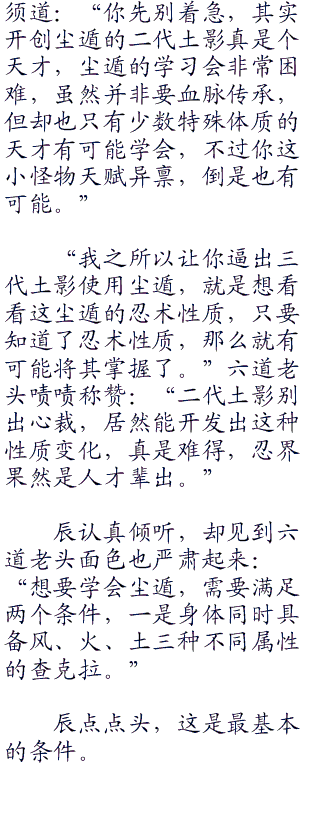 须道：“你先别着急，其实
开创尘遁的二代土影真是个
天才，尘遁的学习会非常困
难，虽然并非要血脉传承，
但却也只有少数特殊体质的
天才有可能学会，不过你这
小怪物天赋异禀，倒是也有
可能。”
“我之所以让你逼出三
代土影使用尘遁，就是想看
看这尘遁的忍术性质，只要
知道了忍术性质，那么就有
可能将其掌握了。”六道老
头啧啧称赞：“二代土影别
出心裁，居然能开发出这种
性质变化，真是难得，忍界
果然是人才辈出。”
辰认真倾听，却见到六
道老头面色也严肃起来：
“想要学会尘遁，需要满足
两个条件，一是身体同时具
备风、火、土三种不同属性
的查克拉。”
辰点点头，这是最基本
的条件。